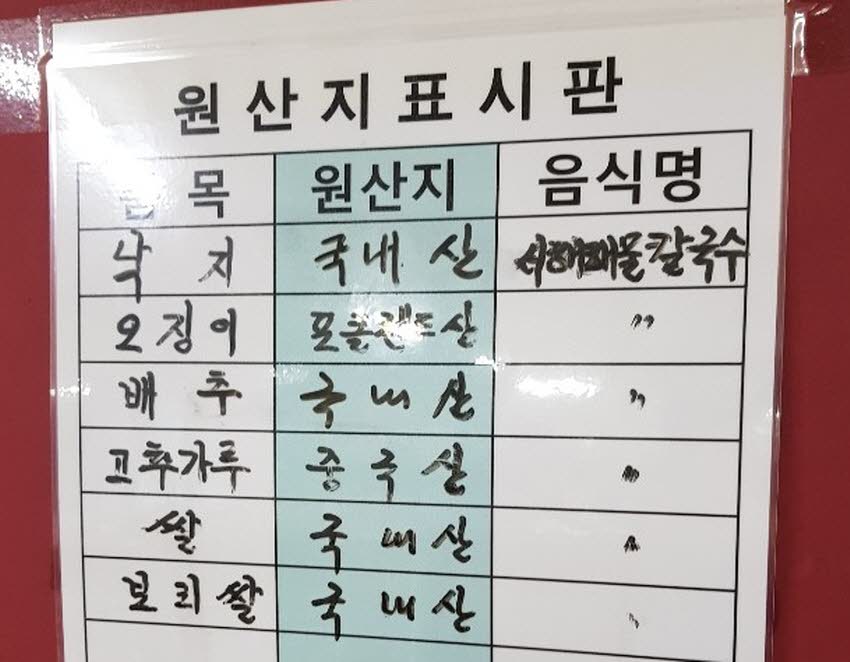 원산지표시판
품목 원산지 음식명
낙지 국내산 서해해물칼국수
오징어 포클랜드산 "
배추 국내산 "
고추가루 중국산 "
쌀 국내산 "
보리쌀 국내산 "